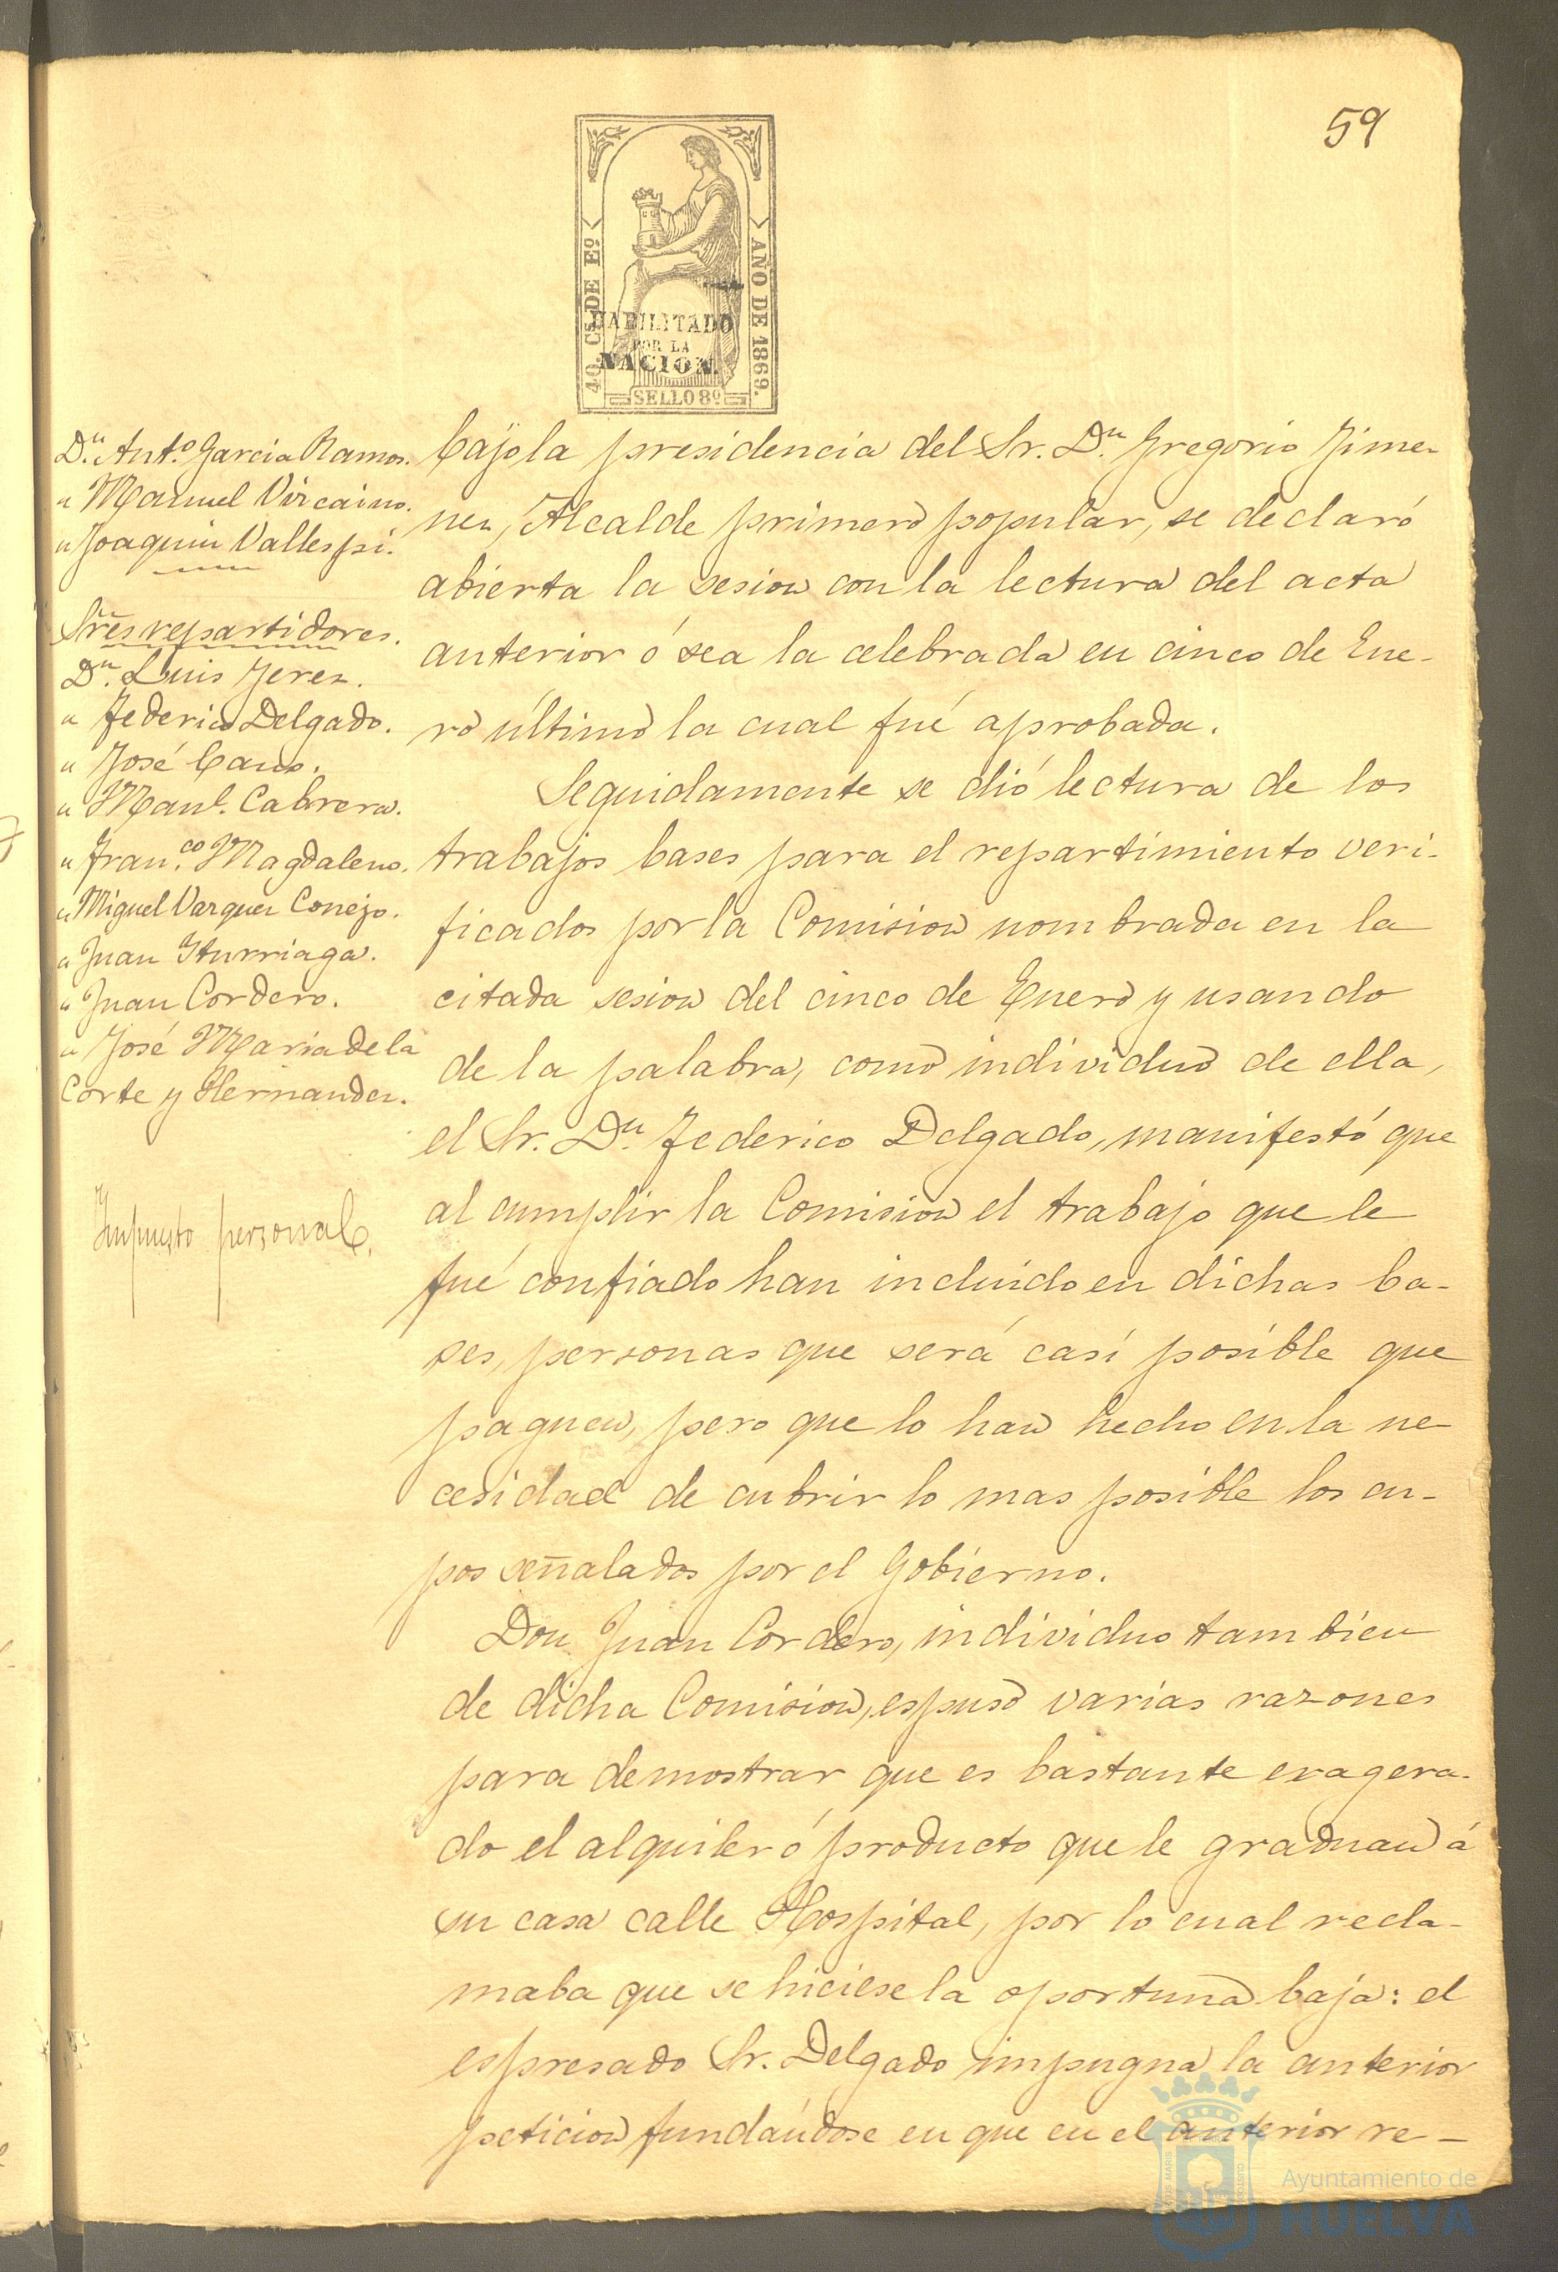 59
40 Cs. DE Eº
AÑO DE 1869.
HABILITADO
POR LA
NACION.
SELLO 8º
Dn. Antº. Garcia Ramos.
" Manuel Vizcaino.
" Joaquin Vallespi.
Sres repartidores.
Dn. Luis Jerez.
" Federico Delgado.
" José Cano.
" Manl. Cabrera.
" Franco. Magdaleno.
" Miguel Vazquez Conejo.
" Juan Iturriaga.
" Juan Cordero.
" José Maria de la
Corte y Hernandez.
Impuesto personal.
bajo la presidencia del Sr. Dn. Gregorio Jime-
nez, Alcalde primero popular, se declaró
abierta la sesion con la lectura del acta
anterior ó sea la celebrada en cinco de Ene-
ro último la cual fué aprobada.
Seguidamente se dió lectura de los
trabajos bases para el repartimiento veri-
ficados por la Comision nombrada en la
citada sesion del cinco de Enero y usando
de la palabra, como individuo de ella,
el Sr. Dn. Federico Delgado, manifestó que
al cumplir la Comision el trabajo que le
fué confiado han incluido en dichas ba-
ses, personas que será casi posible que
paguen, pero que lo han hecho en la ne
cesidad de cubrir lo mas posible los cu-
pos señalados por el Gobierno.
Don Juan Cordero, individuo tambien
de dicha Comision, espuso varias razones
para demostrar que es bastante exagera-
do el alquiler ó producto que le graduan á
su casa calle Hospital, por lo cual recla-
maba que se hiciese la oportuna baja: el
espresado Sr. Delgado impugna la anterior
peticion fundándose en que en el anterior re-
Ayuntamiento de
HUELVA